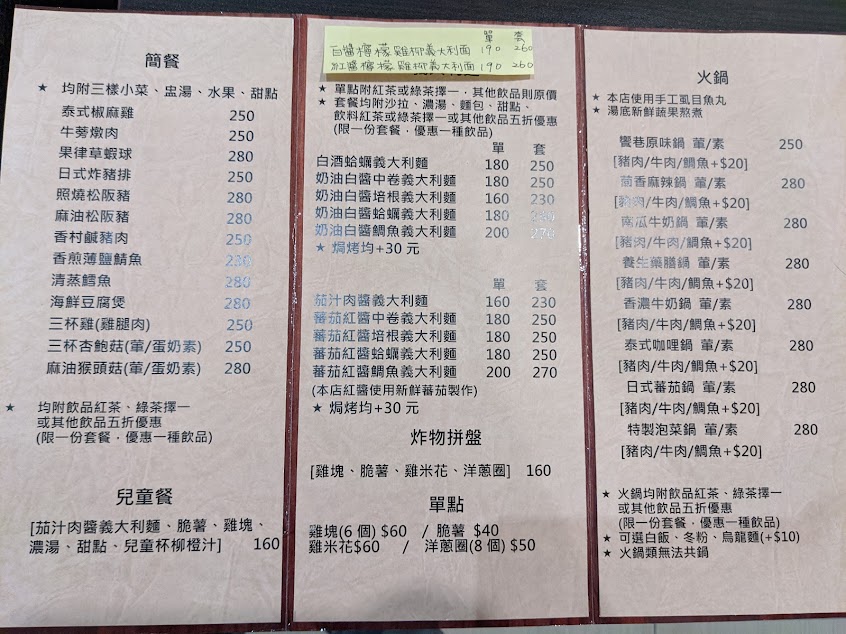 簡餐
★ 均附三樣小菜、盅湯、水果、甜點
泰式椒麻雞 250
牛蒡燉肉 250
果律草蝦球 280
日式炸豬排 250
照燒松阪豬 280
麻油松阪豬 280
香村鹹豬肉 250
香煎薄鹽鯖魚 230
清蒸鱈魚 280
海鮮豆腐煲 280
三杯雞(雞腿肉) 250
三杯杏鮑菇(葷/蛋奶素) 250
麻油猴頭菇(葷/蛋奶素) 280
★ 均附飲品紅茶、綠茶擇一
或其他飲品五折優惠
(限一份套餐．優惠一種飲品)
兒童餐
[茄汁肉醬義大利麵、脆薯、雞塊、
濃湯、甜點、兒童杯柳橙汁] 160
單 套
白醬檸檬雞柳義大利面 190 260
紅醬檸檬雞柳義大利面 190 260
★ 單點附紅茶或綠茶擇一．其他飲品則原價
★ 套餐均附沙拉、濃湯、麵包、甜點、
飲料紅茶或綠茶擇一或其他飲品五折優惠
(限一份套餐．優惠一種飲品)
單 套
白酒蛤蠣義大利麵 180 250
奶油白醬中卷義大利麵 180 250
奶油白醬培根義大利麵 160 230
奶油白醬蛤蠣義大利麵 180
奶油白醬鯛魚義大利麵 200 270
★ 焗烤均+30 元
單 套
茄汁肉醬義大利麵 160 230
蕃茄紅醬中卷義大利麵 180 250
蕃茄紅醬培根義大利麵 180 250
蕃茄紅醬蛤蠣義大利麵 180 250
蕃茄紅醬鯛魚義大利麵 200 270
(本店紅醬使用新鮮蕃茄製作)
★ 焗烤均+30 元
炸物拼盤
[雞塊、脆薯、雞米花、洋蔥圈] 160
單點
雞塊(6 個) $60 / 脆薯 $40
雞米花$60 / 洋蔥圈(8 個) $50
火鍋
★ 本店使用手工虱目魚丸
★ 湯底新鮮蔬果熬煮
饗巷原味鍋 葷/素 250
[豬肉/牛肉/鯛魚+$20]
茴香麻辣鍋 葷/素 280
[豬肉/牛肉/鯛魚+$20]
南瓜牛奶鍋 葷/素 280
[豬肉/牛肉/鯛魚+$20]
養生藥膳鍋 葷/素 280
[豬肉/牛肉/鯛魚+$20]
香濃牛奶鍋 葷/素 280
[豬肉/牛肉/鯛魚+$20]
泰式咖哩鍋 葷/素 280
[豬肉/牛肉/鯛魚+$20]
日式蕃茄鍋 葷/素 280
[豬肉/牛肉/鯛魚+$20]
特製泡菜鍋 葷/素 280
[豬肉/牛肉/鯛魚+$20]
★ 火鍋均附飲品紅茶、綠茶擇一
或其他飲品五折優惠
(限一份套餐．優惠一種飲品)
★ 可選白飯、冬粉、烏龍麵(+$10)
★ 火鍋類無法共鍋